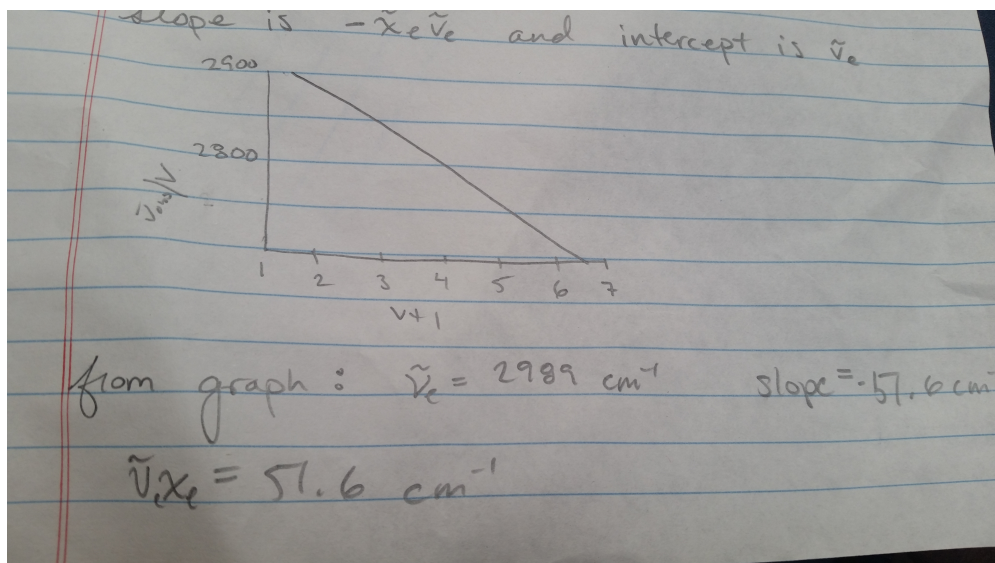 slope is -x̃ₑṽₑ and intercept is ṽₑ
2900
2800
ṽobs/v
1 2 3 4 5 6 7
v+1
from graph: ṽₑ = 2989 cm⁻¹ slope = -51.6 cm⁻
ṽₑxₑ = 51.6 cm⁻¹